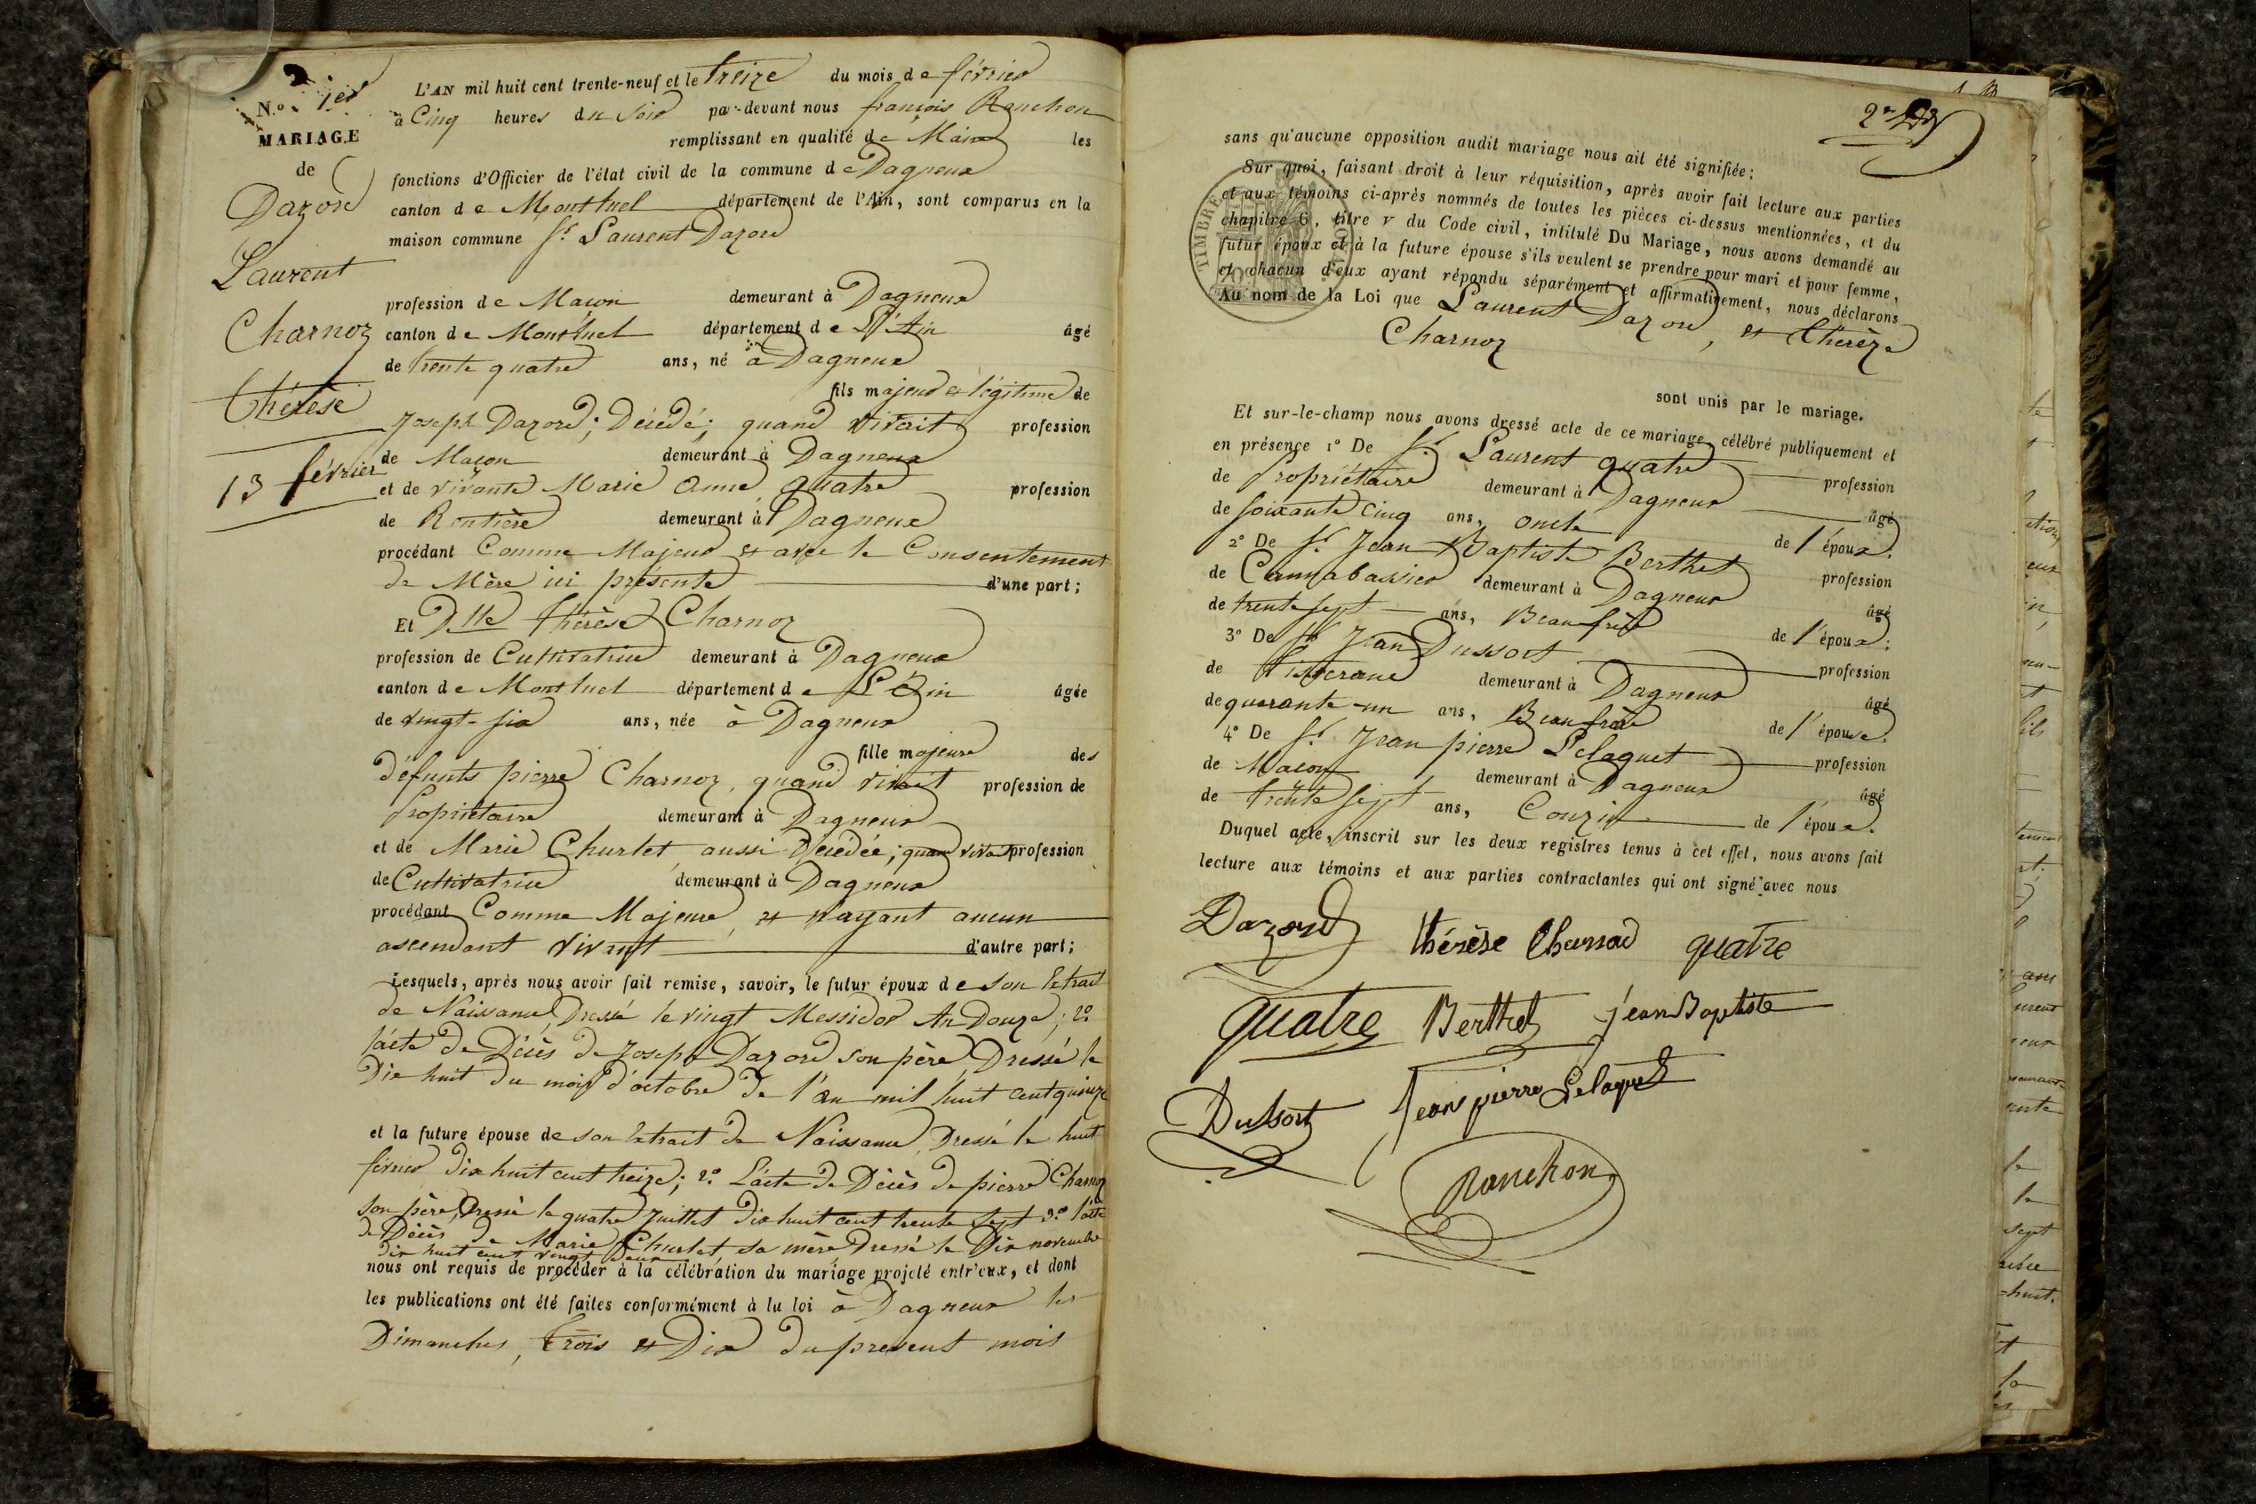 N.o 1er
MARIAGE
de
Dazord
Laurent
Charnoz
Thérèse
13 février
L'AN mil huit cent trente-neuf et le treize du mois de février
à Cinq heures du soir par-devant nous françois Ranchon
remplissant en qualité de Maire les
fonctions d'Officier de l'état civil de la commune de Dagneux
canton de Montluel département de l'Ain, sont comparus en la
maison commune Sr. Laurent Dazord
profession de Maçon demeurant à Dagneux
canton de Montluel département de L'Ain âgé
de trente quatre ans, né à Dagneux
fils majeur et légitime de
Joseph Dazord; Décédé; quand vivait profession
de Maçon demeurant à Dagneux
et de vivante Marie Anne quatre profession
de Rentière demeurant à Dagneux
procédant Comme Majeur et avec le Consentement
de Mère ici présente d'une part;
Et Dlle Thérèse Charnoz
profession de Cultivatrice demeurant à Dagneux
canton de Montluel département de L'Ain âgée
de vingt-six ans, née à Dagneux
fille majeure des
défunts pierre Charnoz, quand vivait profession de
Propriétaire demeurant à Dagneux
et de Marie Churlet, aussi Décédée; quand vivait profession
de Cultivatrice demeurant à Dagneux
procédant Comme Majeure, et n'ayant aucun
ascendant vivant d'autre part;
Lesquels, après nous avoir fait remise, savoir, le futur époux de son Extrait
de Naissance, Dressé le vingt Messidor An Douze; 2o
l'acte de Décès de Joseph Dazord son père, Dressé le
Dix huit du mois d'octobre de l'an mil huit cent quinze
et la future épouse de son Extrait de Naissance, Dressé le huit
février dix huit cent treize; 2o L'acte de Décès de pierre Charnoz
son père, Dressé le quatre Juillet dix huit cent trente sept 3o l'acte
de Décès de Marie Churlet sa mère Dressé le Dix novembre
dix huit cent vingt deux
nous ont requis de procéder à la célébration du mariage projeté entr'eux, et dont
les publications ont été faites conformément à la loi à Dagneux les
Dimanches, trois et Dix du present mois
2e
sans qu'aucune opposition audit mariage nous ait été signifiée;
Sur quoi, faisant droit à leur réquisition, après avoir fait lecture aux parties
et aux témoins ci-après nommés de toutes les pièces ci-dessus mentionnées, et du
chapitre 6, titre v du Code civil, intitulé Du Mariage, nous avons demandé au
futur époux et à la future épouse s'ils veulent se prendre pour mari et pour femme,
et chacun d'eux ayant répondu séparément et affirmativement, nous déclarons
Au nom de la Loi que Laurent Dazord, et Thérèze
Charnoz
sont unis par le mariage.
Et sur-le-champ nous avons dressé acte de ce mariage célébré publiquement et
en présence 1o De Sr. Laurent quatre profession
de Propriétaire demeurant à Dagneux âgé
de soixante cinq ans, oncle de l'époux.
2o De Sr. Jean Baptiste Berthet profession
de Cannabassier demeurant à Dagneux âgé
de trente sept ans, Beaufrère de l'époux.
3o De Sr. Jean Dussort profession
de Tisserand demeurant à Dagneux âgé
de quarante-un ans, Beaufrère de l'épouse.
4o De Sr. Jean pierre Pelaquet profession
de Maçon demeurant à Dagneux âgé
de trente sept ans, Couzin de l'époux.
Duquel acte, inscrit sur les deux registres tenus à cet effet, nous avons fait
lecture aux témoins et aux parties contractantes qui ont signé avec nous
Dazord Thérèse quatre
quatre Berthet jean Baptiste
Dussort Jean pierre Pelaquet
Ranchon
TIMBRE ROYAL